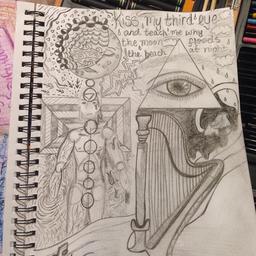 Kiss my third eye
& and teach me why
the moon floods
the beach at night